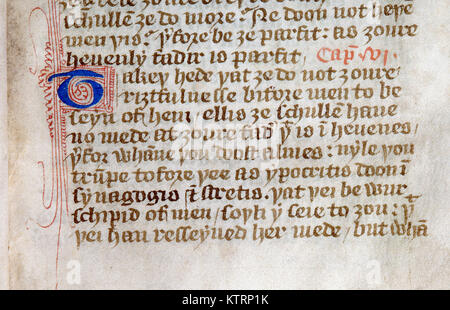 schullen ȝe do more: Ne doon not heþe
men þis: þ̓fore be ȝe parfit: as ȝoure
heuenly fadir is parfit. Cap̄. vi.
Takeþ hede þat ȝe do not ȝoure
riȝtfulnesse bifore men to be
seyn of hem, ellis ȝe schullen haue
no mede at ȝoure fadir þ̓ is ī heuenes,
þ̓for whāne þou dost almes: nyle þou
trūpe tofore þee as ypocritis doon ī
synagogis ⁊ ī stretis. þat þei be wur-
schipid of men, soþli y seie to ȝou: þ̓
þei han resseyued her mede, but whā
a
alamy
Image ID: KTRP1K
www.alamy.com